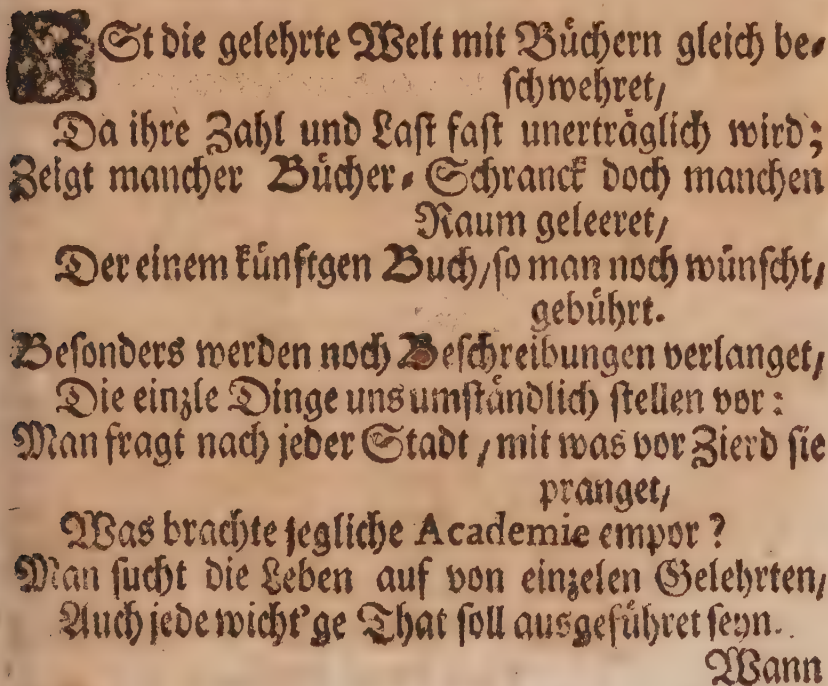 ISt die gelehrte Welt mit Büchern gleich be-
schwehret/
Da ihre Zahl und Last fast unerträglich wird;
Zeigt mancher Bücher-Schranck doch manchen
Raum geleeret/
Der einem künftgen Buch/so man noch wünscht/
gebührt.
Besonders werden noch Beschreibungen verlanget/
Die einzle Dinge uns umständlich stellen vor:
Man fragt nach jeder Stadt/mit was vor Zierd sie
pranget/
Was brachte jegliche Academie empor?
Man sucht die Leben auf von einzelen Gelehrten/
Auch jede wicht'ge That soll ausgeführet seyn.
Wann